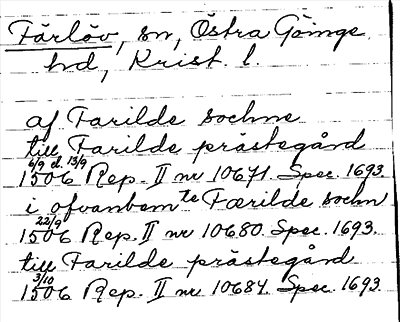 Färlöv, sn, Östra Göinge
hd, Krist. l.
af Farilde sochne
till Farilde prästegård
6/9 d. 13/9
1506 Rep. II nr 10671. Spec. 1693.
i ofvanbemte Færilde sochn
22/9
1506 Rep. II nr 10680. Spec. 1693.
till Farilde prästegård
3/10
1506 Rep. II nr 10684. Spec. 1693.